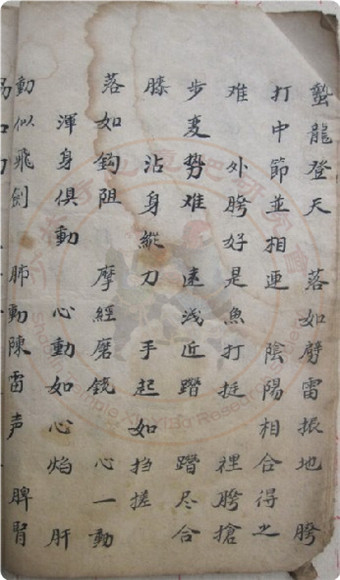 蟄龍登天 落如劈雷振地 胯
打中節並相連 陰陽相合得之
难 外胯好是魚打挺 裡胯搶
步变势难 速浅近蹬 蹬尽合
膝 沾身縱刀 手起如挡搓
落如鈎阻 摩經磨銳 心一動
渾身俱動 心動如心焰 肝
動似飛劍 肺動陳雷声 脾腎